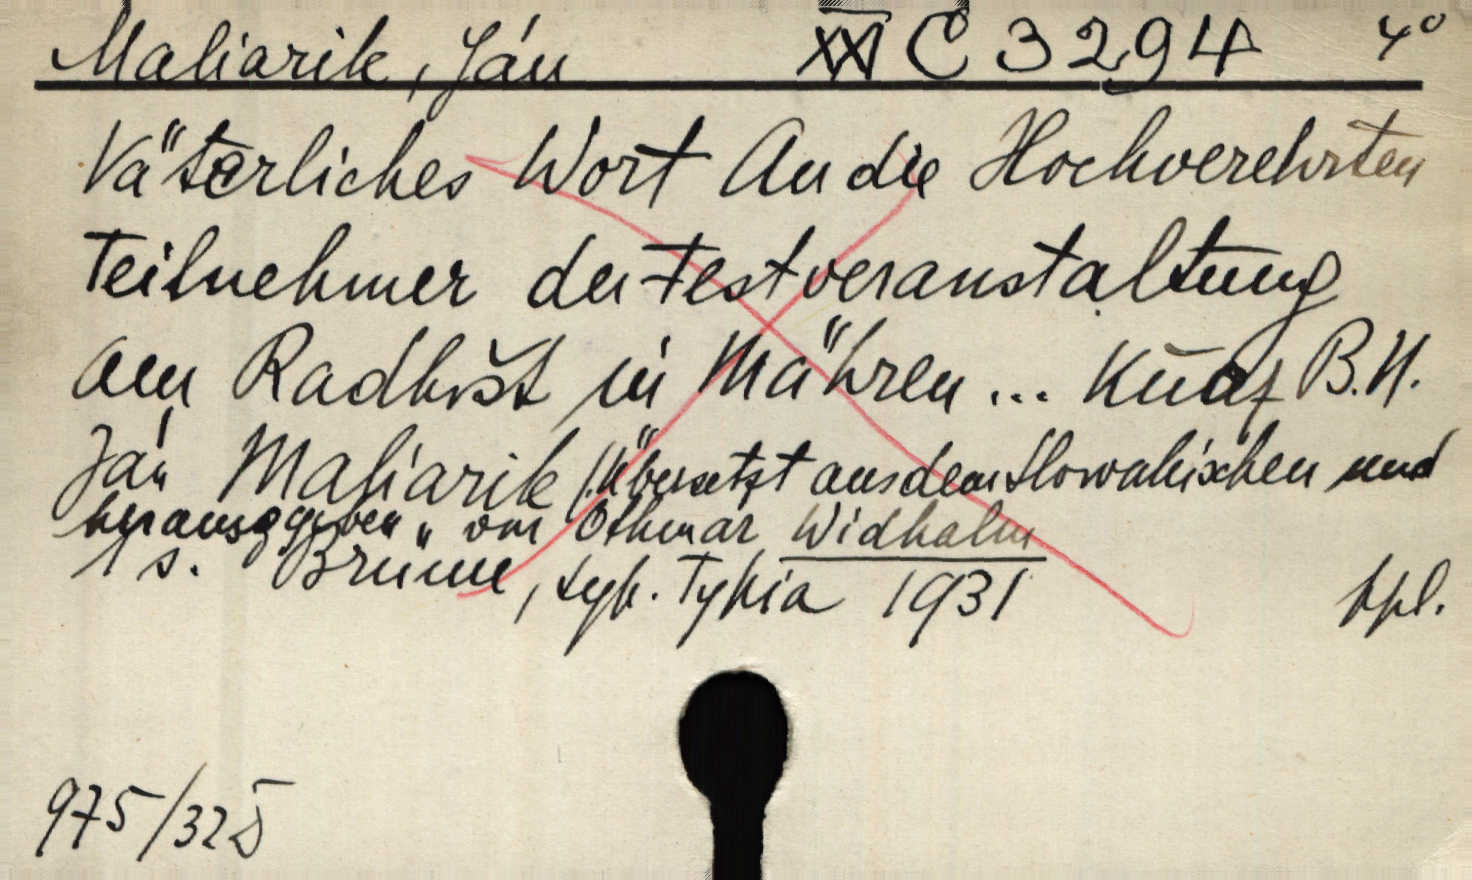 Maliarik, Ján C 3294 4°
Väterliches Wort An die Hochverehrten
Teilnehmer der Festveranstaltung
am Radhošt in Mähren ... B.H.
Ján Maliarik (Übersetzt aus dem Slowakischen und
herausgegeben" von Othmar Widhalm
1 s. Brünn, typ. Typia 1931 kpl.
975/325